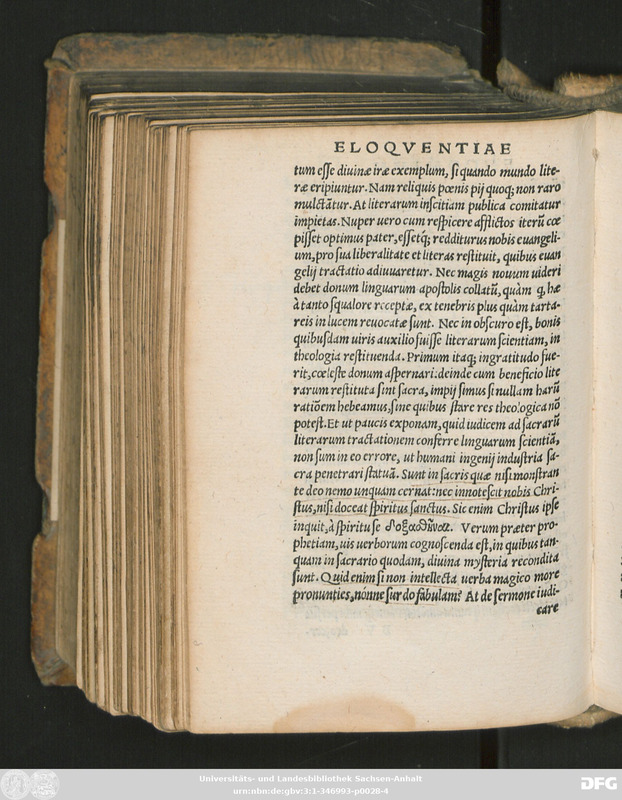 ELOQVENTIAE
tum esse diuinæ iræ exemplum, si quando mundo lite-
ræ eripiuntur. Nam reliquis pœnis pij quoq; non raro
mulctãtur. At literarum inscitiam publica comitatur
impietas. Nuper uero cum respicere afflictos iterũ cœ
pisset optimus pater, essetq́; redditurus nobis euangeli-
um, pro sua liberalitate et literas restituit, quibus euan
gelij tractatio adiuuaretur. Nec magis nouum uideri
debet donum linguarum apostolis collatũ, quàm q, hæ
à tanto squalore receptæ, ex tenebris plus quàm tarta-
reis in lucem reuocatæ sunt. Nec in obscuro est, bonis
quibusdam uiris auxilio fuisse literarum scientiam, in
theologia restituenda. Primum itaq; ingratitudo fue-
rit, cœleste donum aspernari: deinde cum beneficio lite
rarum restituta sint sacra, impij simus si nullam harũ
ratiõem habeamus, sine quibus stare res theologica nõ
potest. Et ut paucis exponam, quid iudicem ad sacrarũ
literarum tractationem conferre linguarum scientiã,
non sum in eo errore, ut humani ingenij industria sa-
cra penetrari statuã. Sunt in sacris quæ nisi monstran
te deo nemo unquam cernat: nec innotescit nobis Chri-
stus, nisi doceat spiritus sanctus. Sic enim Christus ipse
inquit, à spiritu se δοξαϑῆναι. Verum præter pro-
phetiam, uis uerborum cognoscenda est, in quibus tan-
quam in sacrario quodam, diuina mysteria recondita
sunt. Quid enim si non intellecta uerba magico more
pronunties, nónne surdo fabulam? At de sermone iudi-
care
Universitäts- und Landesbibliothek Sachsen-Anhalt
urn:nbn:de:gbv:3:1-346993-p0028-4
DFG